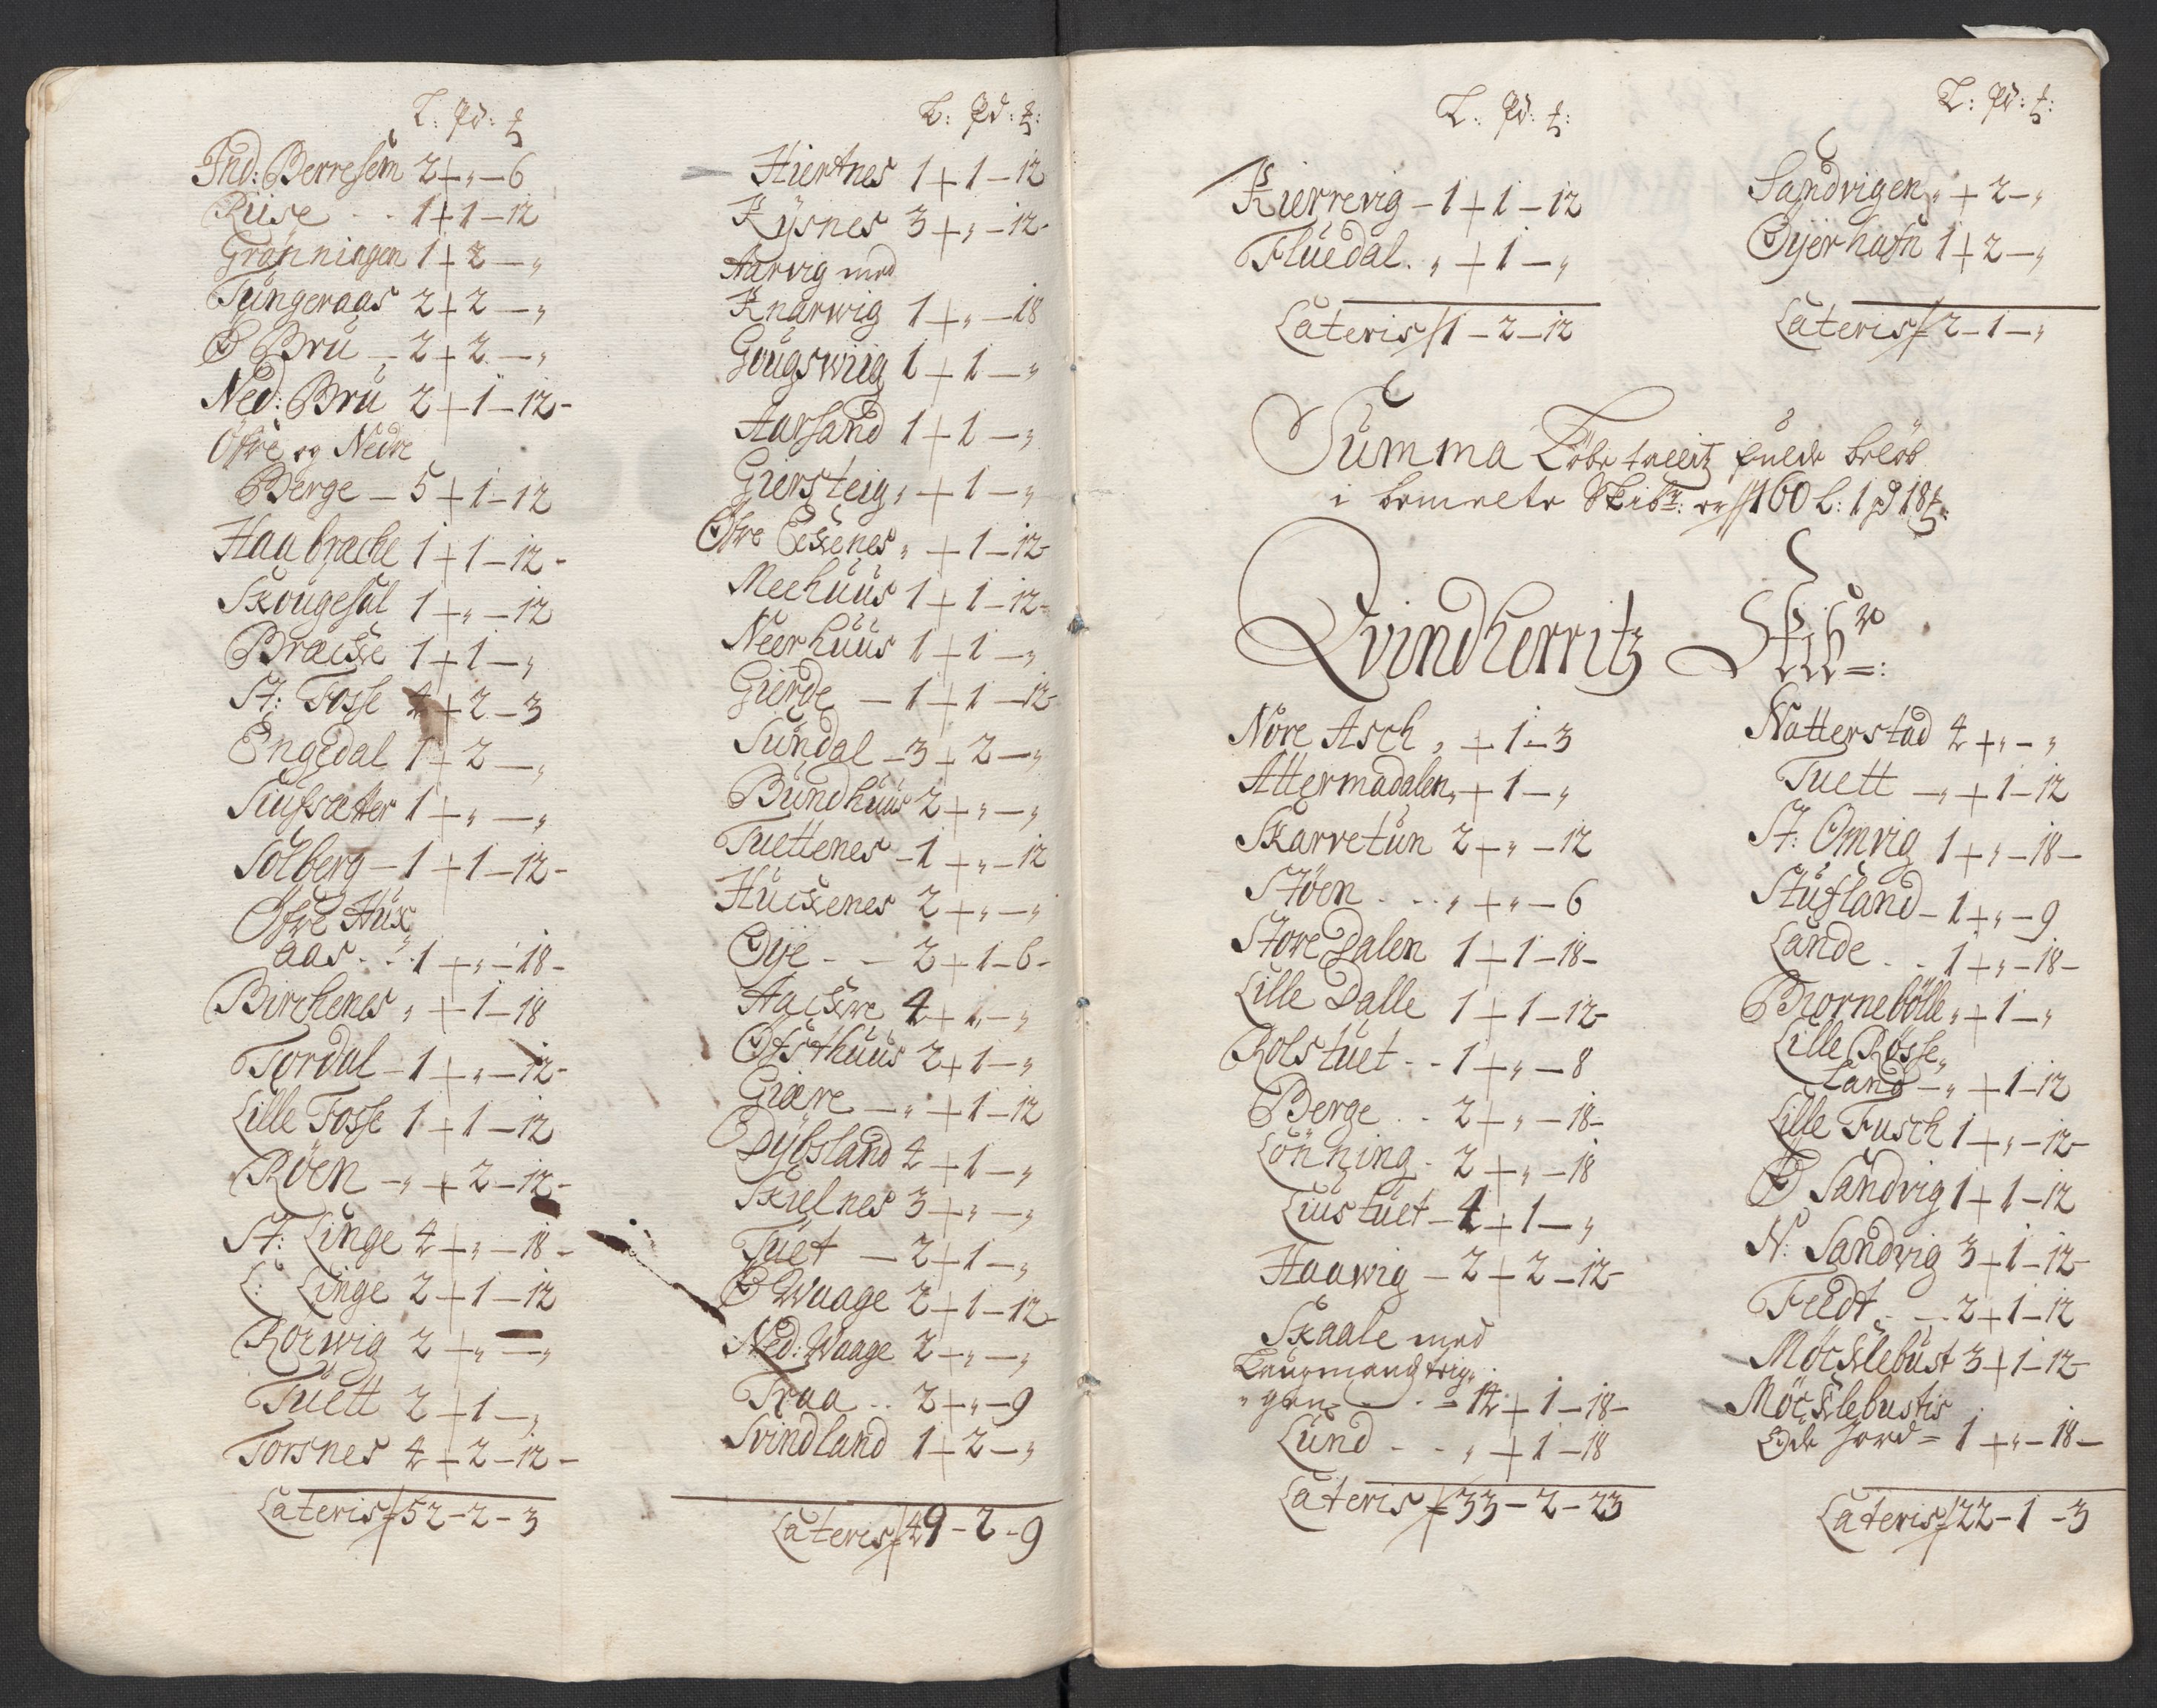 L: Pd: ℔
Ind: Berresem 2 + „ – 6
Riise - - 1 + 1 – 12
Grønningen 1 + 2 – „
Tungeraas 2 + 2 – „
Ø Bru – 2 + 2 – „
Ned: Bru 2 + 1 – 12 -
Øfre og Nedre
Berge – 5 + 1 – 12
Haabrecke 1 + 1 – 12 -
Skougesal 1 + „ – 12
Brecke 1 + 1 – „
St: Fosse 4 + 2 – 3
Engedal 1 + 2 – „
Siufsæter 1 + „ – „
Solberg – 1 + 1 – 12 -
Øfre Hux
aas - - 1 + „ – 18 -
Birchenes „ + 1 – 18
Tordal – 1 + „ – 12 -
Lille Fosse 1 + 1 – 12
Røen – „ + 2 – 12 -
St: Linge 4 + „ – 18 -
L: Linge 2 + 1 – 12
Rorwig 2 + „ – „
Tuett 2 + 1 – „
Torsnes 4 + 2 – 12 -
Lateris 52 – 2 – 3
L: Pd: ℔:
Hiertnes 1 + 1 – 12
Kysnes 3 + „ – 12 -
Aarvig med
Knarwig 1 + „ – 18
Gougswiig 1 + 1 – „
Aarsand 1 + 1 – „
Giersteig „ + 1 – „
Øfre Eckenes „ + 1 – 12 -
Meehuus 1 + 1 – 12 -
Neerhuus 1 + 1 – „
Gierde – 1 + 1 – 12 -
Sundal – 3 + 2 – „
Bundhuus 2 + „ – „
Tuettenes – 1 + „ – 12
Huckenes 2 + „ – „
Øije - – 2 + 1 – 6 -
Aackre 4 + 1 – „
Øfsthuus 2 + 1 – „
Giære – „ + 1 – 12
Dybsland 4 + 1 – „
Skielnes 3 + „ – „
Tuet – 2 + 1 – „
Ø Waage 2 + 1 – 12 -
Ned: Waage 2 + „ – „
Traa - - 2 + „ – 9
Svindland 1 + 2 – „
Lateris 49 – 2 – 9
L: Pd: ℔:
Kierrevig – 1 + 1 – 12
Fluedal. „ + 1 – „
Lateris 1 – 2 – 12
L: Pd: ℔:
Sandvigen „ + 2 – „
Øyerhafn 1 + 2 – „
Lateris 2 – 1 – „
Summa Løbe tallitz fulde beløb
i bemelte Skibr: er 160 L: 1 pd 18 ℔:
Qvindherritz Skibr:
Nore Asch „ + 1 – 3
Attermadalen „ + 1 – „
Skarvetun 2 + „ – 12
Støen - - „ + „ – 6
Store Dalen 1 + 1 – 18 -
Lille Dalle 1 + 1 – 12 -
Rolstuet - - 1 + „ – 8
Berge - - 2 + „ – 18 -
Lønning - 2 + „ – 18
Liustuet – 4 + 1 – „
Haawig – 2 + 2 – 12 -
Skaale med
Kaupmandtrig„
„gen - - 14 + 1 – 18 -
Lund - - „ + 1 – 18
Lateris 33 – 2 – 23
Natterstad 4 + „ – „
Tuett – „ + 1 – 12
St: Omvig 1 + „ – 18 -
Stufland – 1 + „ – 9
Lande - - 1 + „ – 18 -
Biornebølle „ + 1 – „
Lille Røsse„
Land – „ + 1 – 12
Lille Fusch 1 + „ – 12 -
Ø Sandvig 1 + 1 – 12
N: Sandvig 3 + 1 – 12 -
Feedt - - 2 + 1 – 12
Møcklebust 3 + 1 – 12 -
Møcklebustis
Øde Jord = 1 + „ – 18 -
Lateris 22 – 1 – 3